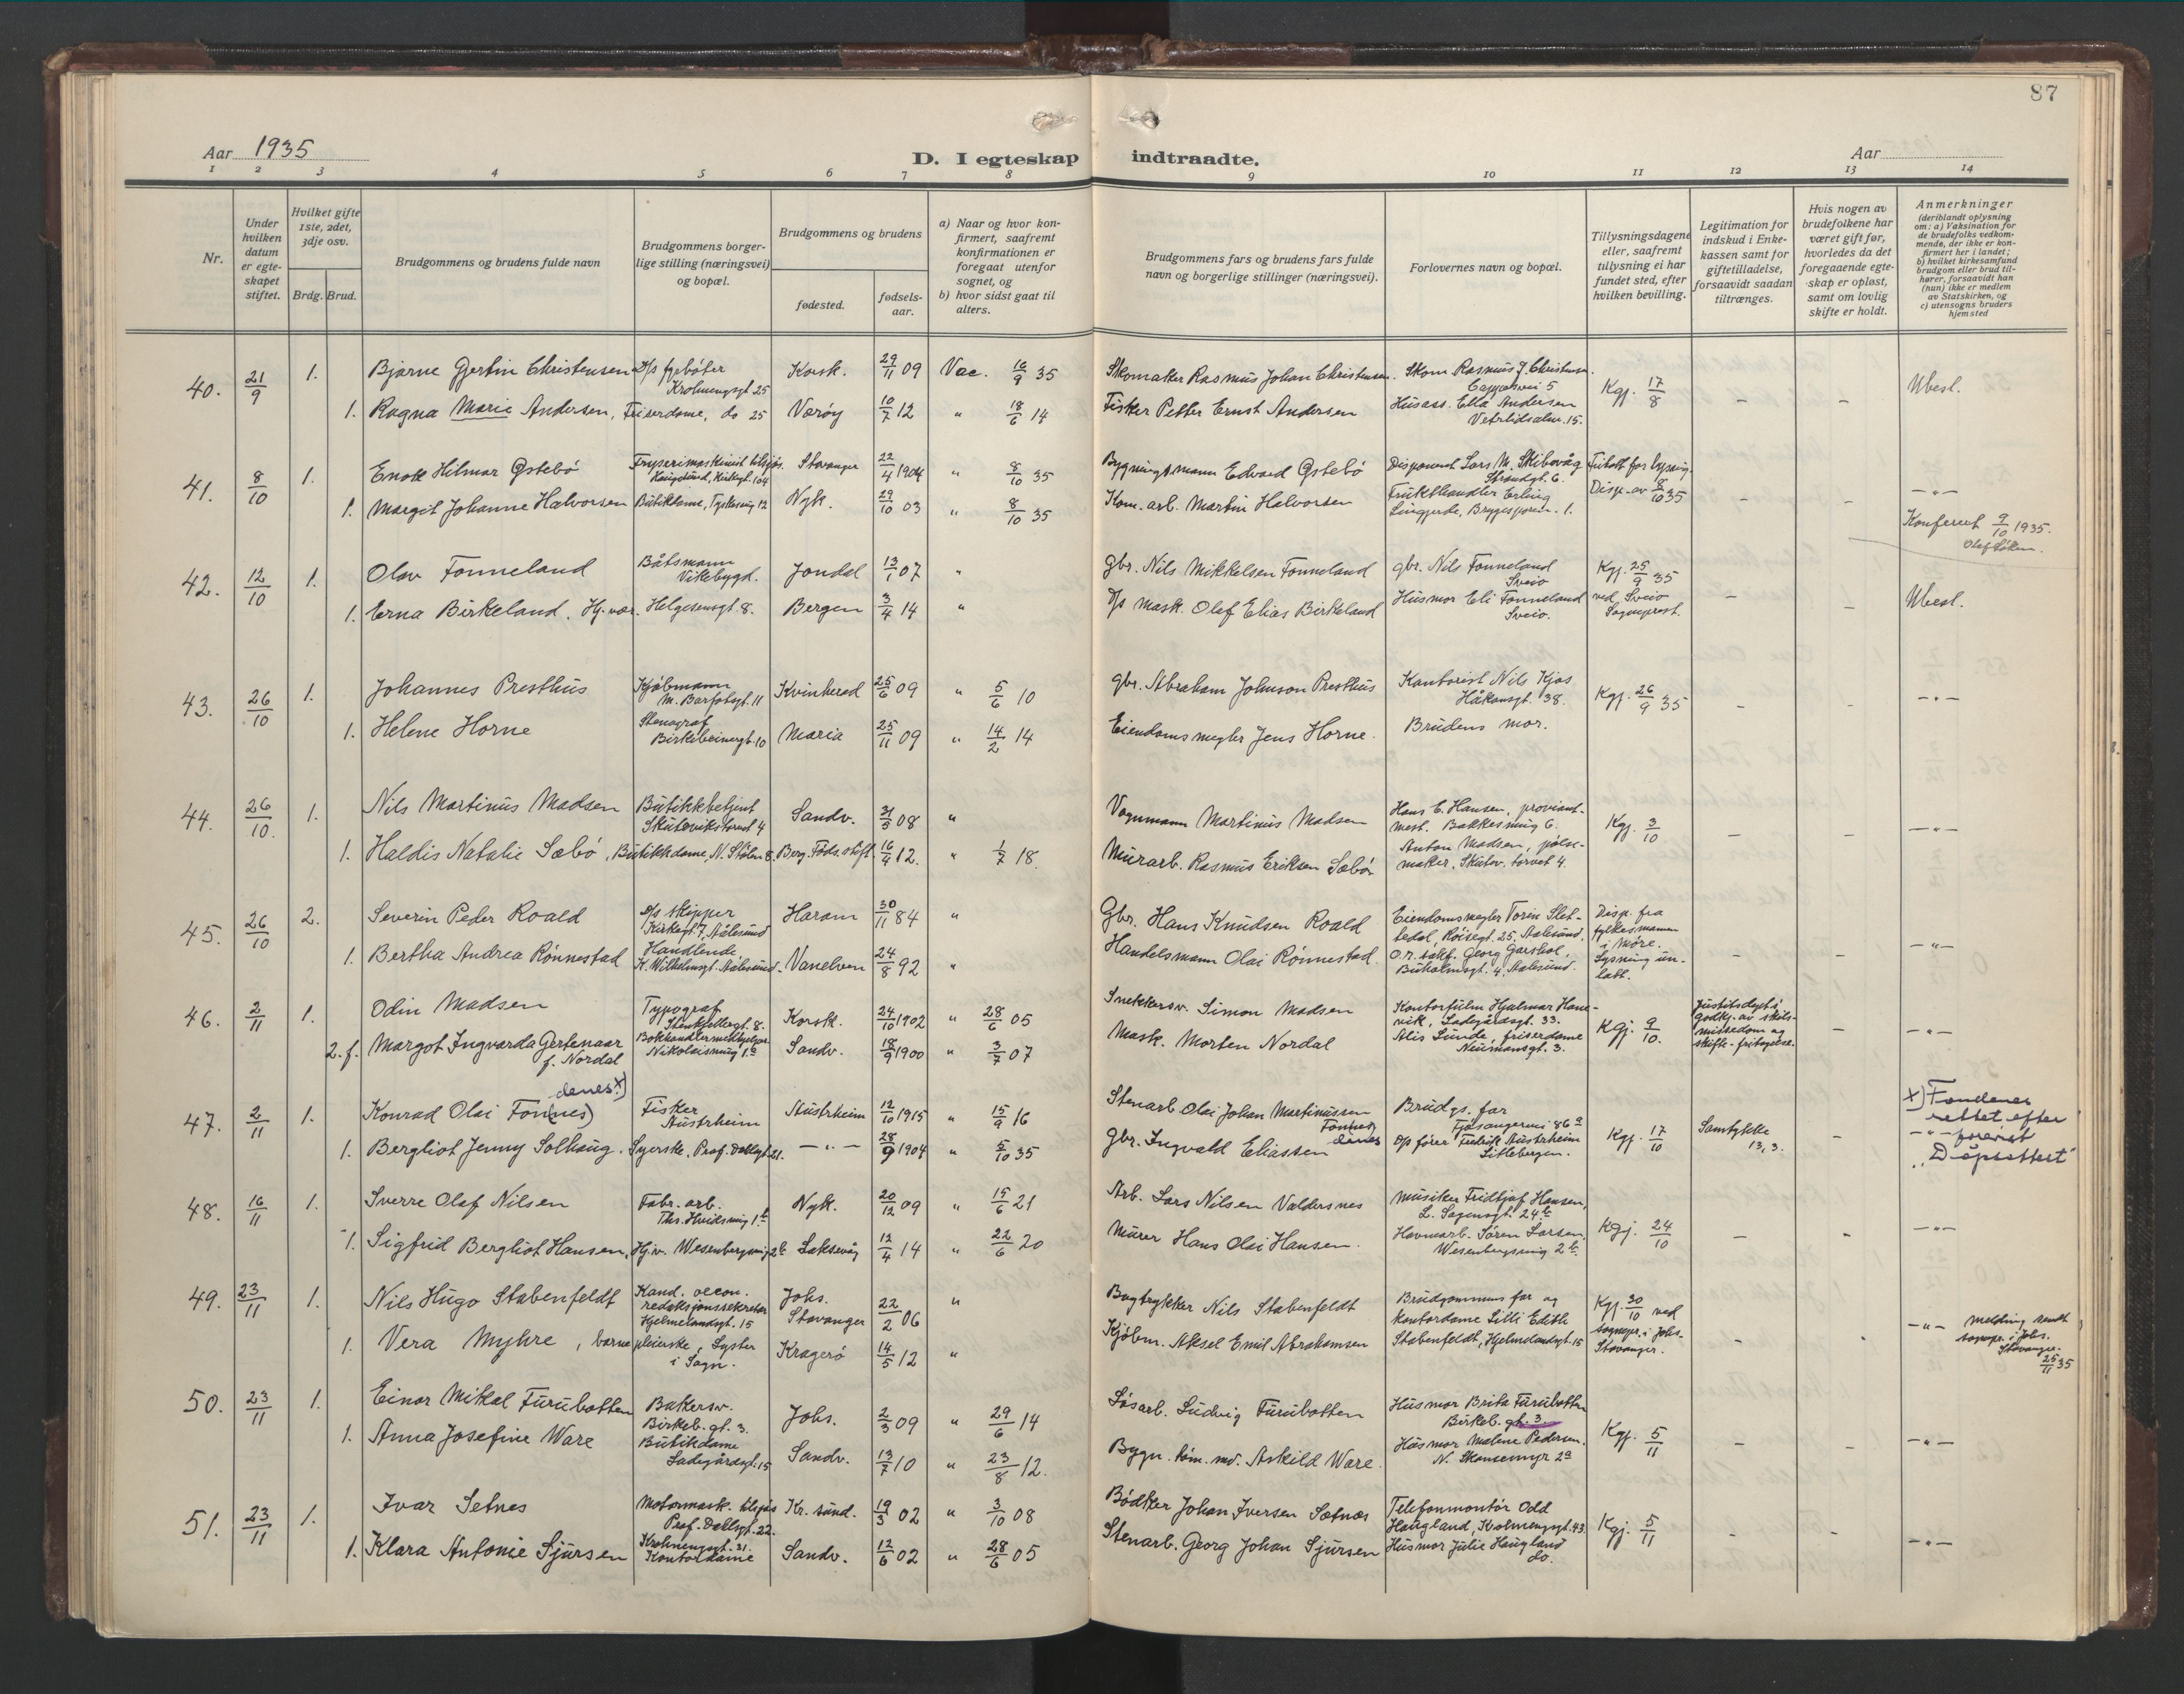 87
Aar 1935
D. I egteskap indtraadte.
Aar
1 2 3 4 5 6 7 8 9 10 11 12 13 14
Nr.
Under
hvilken
datum
er egte-
skapet
stiftet.
Hvilket gifte
1ste, 2det,
3dje osv.
Brdg. Brud.
Brudgommens og brudens fulde navn
Brudgommens borger-
lige stilling (næringsvei)
og bopæl.
Brudgommens og brudens
fødested.
fødsels-
aar.
a) Naar og hvor kon-
firmert, saafremt
konfirmationen er
foregaat utenfor
sognet, og
b) hvor sidst gaat til
alters.
Brudgommens fars og brudens fars fulde
navn og borgerlige stillinger (næringsvei).
Forlovernes navn og bopæl.
Tillysningsdagene
eller, saafremt
tillysning ei har
fundet sted, efter
hvilken bevilling.
Legitimation for
indskud i Enke-
kassen samt for
giftetilladelse,
forsaavidt saadan
tiltrænges.
Hvis nogen av
brudefolkene har
været gift før,
hvorledes da det
foregaaende egte-
skap er opløst,
samt om lovlig
skifte er holdt.
Anmerkninger
(deriblandt oplysning
om: a) Vaksination for
de brudefolks vedkom-
mende, der ikke er kon-
firmert her i landet;
b) hvilket kirkesamfund
brudgom eller brud til-
hører, forsaavidt han
(hun) ikke er medlem
av Statskirken, og
c) utensogns bruders
hjemsted
40. 21/9 1. Bjarne Gjertin Christensen D/s fyrbøter
Krohnengsgt 25 Korsk. 29/11 09 Vac. 16/9 35 Skomaker Rasmus Johan Christensen. Skom. Rasmus J. Christensen.
5 Kgj. 17/8 Ubesl.
1. Ragna Marie Andersen, Friserdame, do 25 Værøy 10/7 12 " 18/6 14 Fisker Petter Ernst Andersen Husass. Ella Andersen
Vetrlidsalm. 15. – –
41. 8/10 1. Enok Hilmar Østebø Fryserimaskinist tilsjøs.
Haugesund, Kirkegt. 104 Stavanger 22/4 1904 " 8/10 35 Bygningsmann Edvard Østebø Disponent Lars M. Skibevåg
Strandgt. 6. Frihold for lysning.
Disp. av 8/10 35
1. Margit Johanne Halvorsen Butikdame, Tyskesmug 12 Nyk. 29/10 03 " 8/10 35 Kom. arb. Martin Halvorsen Frukthandler Erling
Lingjerde, Bryggesporen. 1. – – –"–
Konferert 9/10 1935.
Olaf
42. 12/10 1. Olav Fonneland Båtsmann
Vikebygd. Jondal 13/1 07 " gbr. Nils Mikkelsen Fonneland gbr. Nils Fonneland
Sveio Kgj. 25/9 35
1. Erna Birkeland, Hj. vær. Helgesensgt 8. Bergen 3/4 14 " D/s mask. Olef Elias Birkeland Husmor Eli Fonneland
Sveio. ved Sveio
Sogneprest. – – Ubesl.
43. 26/10 1. Johannes Presthus Kjøbmann
M. Barfotsgt. 11 Kvinherad 25/6 09 " 5/6 10 gbr. Abraham Johnson Presthus Kontorist Nils Kjos
Håkonsgt. 38. Kgj. 26/9 35 – – –"–
1. Helene Horne Stenograf
Birkebeinergt. 10 Maria 25/11 09 " 14/2 14 Eiendomsmegler Jens Horne. Brudens mor.
44. 26/10. 1. Nils Martinus Madsen Butikkbetjent
Skutevikstorvet 4 Sandv. 31/5 08 " Vognmann Martinus Madsen Hans C. Hansen, proviant-
mest. Bakkesmug 6. Kgj. 3/10 – – –"–
1. Haldis Natalie Sæbø, Butikkdame, N. Stølen 8. Berg. Føds. stift. 16/4 12. " 1/7 18. Murarb. Rasmus Eriksen Sæbø Anton Madsen, pølse-
maker, Skutev. torvet 4.
45. 26/10 2. Severin Peder Roald D/s skipper
Kirkegt 7, Aalesund Haram 30/11 84 " Gbr. Hans Knudsen Roald Eiendomsmegler Torin Slet-
tedal, Røisegt. 25, Aalesund. Disp. fra
fylkesmannen
i Møre.
1. Bertha Andrea Rønnestad Handlende,
K. Wilhelmsgt. Aalesund. Vanelven 24/8 92 " Handelsmann Olai Rønnestad. O.r. sakf. Georg Garshol,
Buholmsgt. 4, Aalesund. Lysning un-
latt. – – –"–
46. 2/11 1. Odin Madsen Typograf
Stenkjellergt. 8. Korsk. 24/10 1902 " 28/6 05 Snekkersv. Simon Madsen Kontorfulm Hjalmar Hane-
vik, Ladegårdsgt. 33. Kgj. 9/10. Justitsdept's
godkj. av skils-
missedom og
skifte-fritagelse. – –"–
2. f. Margot Ingvarda Gertenaar
f. Nordal Bokhandlermedhjelper
Nikolaismug 1a Sandv. 18/9 1900 " 3/7 07 Mask. Morten Nordal Alis Lunde, friserdame
Neumansgt. 3.
47. 2/11 1. Konrad Olai Fon(nes) denes x) Fisker
Austrheim Austrheim 12/10 1915 " 15/9 16 Stenarb. Olai Johan Martinussen
Fonnes
denes Brudgs. far
Fjøsangervei 86a Kgj. 17/10 Samtykke
13,3. – x) Fondenes
rettet efter
–"– forevist
"Dåpsattest"
1. Bergliot Jenny Solhaug. Syerske, Prof. Dahlsgt 21. –"– 28/9 1904 " 5/10 35 Gbr. Ingvald Eliassen D/s fører Fredrik Austrheim
Litlebergen.
48. 16/11 1. Sverre Olaf Nilsen Fabr. arb.
Ths. Hvidsmug 1b Nyk. 20/12 09 " 15/6 21 Arb. Lars Nilsen Valdersnes Musiker Fridtjof Hansen,
L. Sagensgt. 24b Kgj. 24/10 – – –"–
1. Sigfrid Bergliot Hansen, Hj.v. Wesenbergsmug 2b Laksevåg 12/4 14 " 22/6 20 Murer Hans Olai Hansen. Havnearb. Søren Larsen,
Wesenbergsmug 2b.
49. 23/11 1. Nils Hugo Stabenfeldt Kand. oecon.
redaksjonssekretær
Hjelmelandsgt. 15 Johs.
Stavanger 22/2 06 " Bogtrykker Nils Stabenfeldt Brudgommens far og
kontordame Lilli Edith Kgj. 30/10 ved
sognepr. i Johs.
Stavanger. –"– melding sendt
sognepr. i Johs.
Stavanger.
25/11 35
1. Vera Myhre, barnepleierske, Lyster
i Sogn. Kragerø 14/5 12 " Kjøbm. Aksel Emil Abrahamsen Stabenfeldt, Hjelmelandsgt. 15 – –
50. 23/11 1. Einar Mikal Furubotten Bakersv.
Birkeb. gt. 3. Johs. 2/3 09 " 29/6 14 Løsarb. Ludvig Furubotten Husmor Brita Furubotten
Birkeb. gt. 3. Kgj. 5/11 – – –"–
1. Anna Josefine Ware Butikdame
Ladegårdsgt. 15 Sandv. 13/7 10 " 23/8 12. Bygn. tøm. md. Askild Ware. Husmor Malene Pedersen.
N. Skansemyr 2a
51. 23/11 1. Ivar Setnes Motormask. tilsjøs
Prof. Dahlsgt. 22. Kr. sund. 19/3 02 " 3/10 08 Bødker Johan Iversen Sætnes Telefonmontør Odd
Haugland, Krohnengsgt. 43. Kgj. 5/11 – – –"–
1. Klara Antonie Sjursen Krohnengsgt. 31.
Kontordame Sandv. 12/6 02 " 28/6 05 Stenarb. Georg Johan Sjursen Husmor Julie Haugland
do.